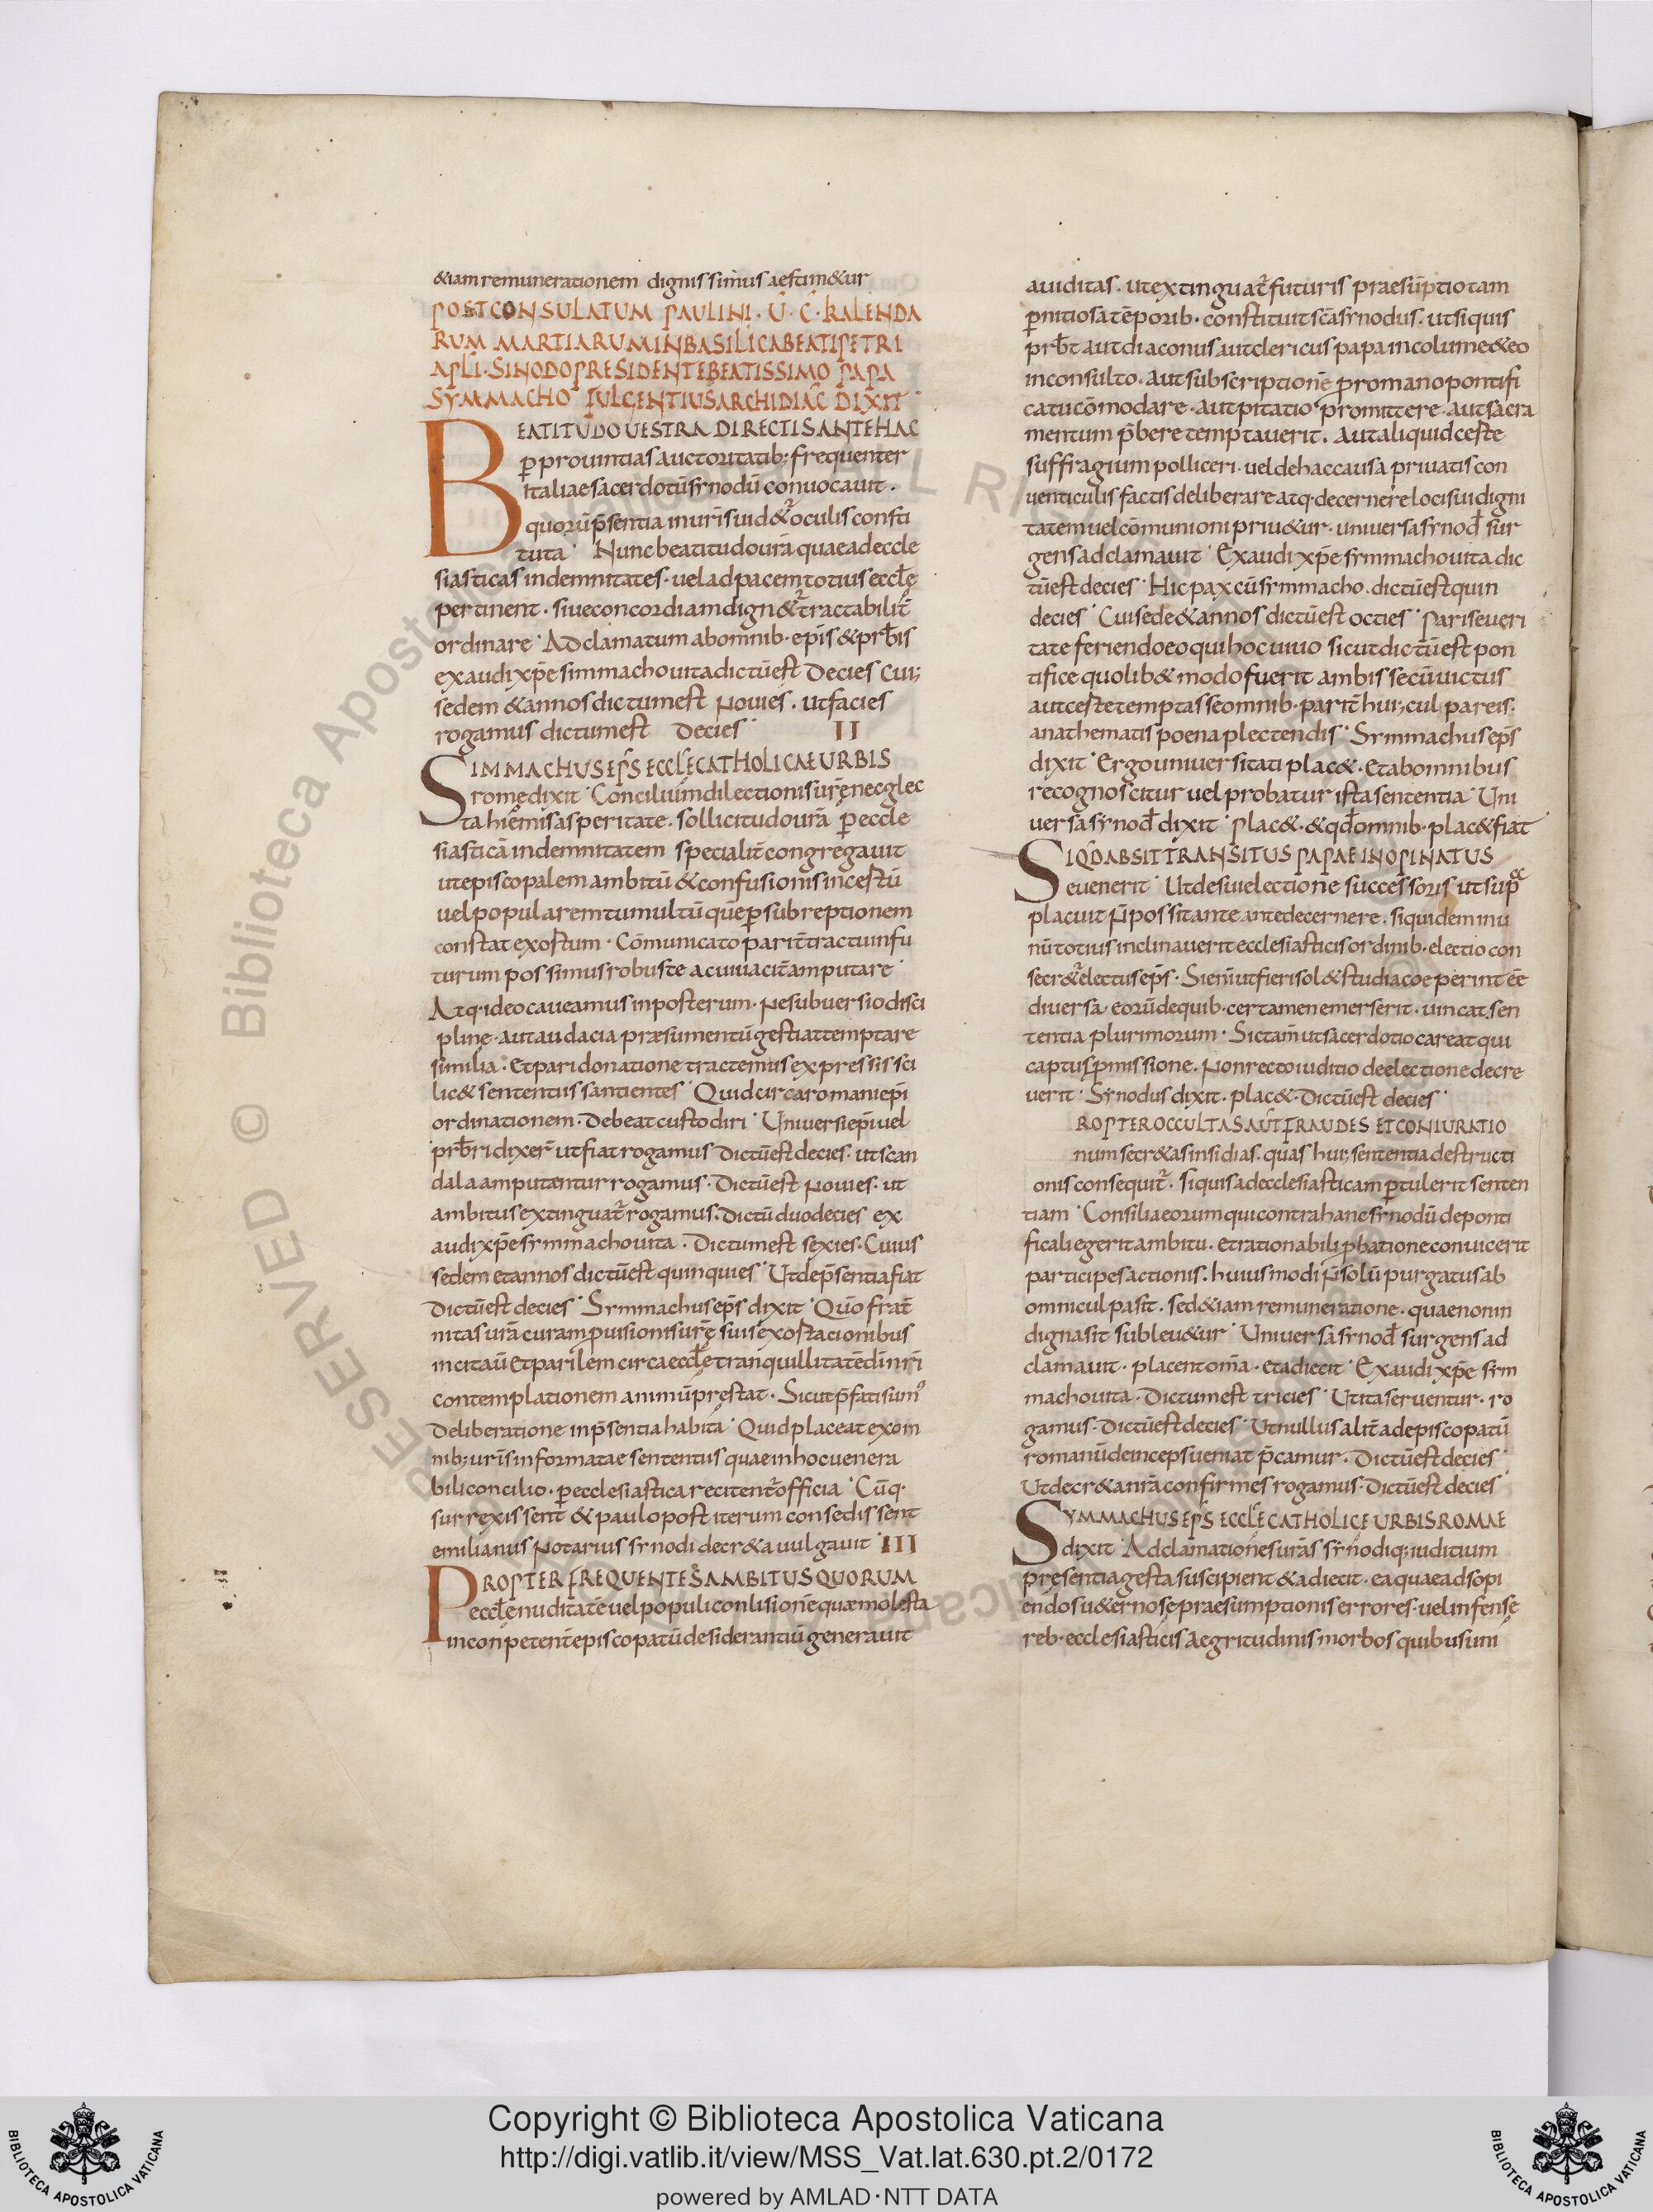 &iam remunerationem dignissimus aestim&ur
POST CONSULATUM PAULINI · U̅ · C̅ · KALENDA
RUM MARTIARUM IN BASILICA BEATI PETRI
APLI · SINODO PRESIDENTE BEATISSIMO PAPA
SYMMACHO FULGENTIUS ARCHIDIAC̅ DIXIT
BEATITUDO UESTRA DIRECTIS ANTEHAC
ꝑ prouintias auctoritatib; frequenter
italiae sacerdotu̅ synodu̅ conuocauit ·
quoru̅ p̅sentia in ur̅is uid&r̅ oculis consti
tuta · Nunc beatitudo ur̅a quae ad eccle
siasticas indemnitates · uel ad pacem totius eccl̅ę
pertinent · siue concordiam dign&r̅ tractabilit̅
ordinare · Adclamatum ab omnib · ep̅is & prb̅is
exaudi xp̅e simmacho uita dictu̅ est Decies Cui;
sedem & annos dictum est Nouies · ut facies
rogamus dictum est Decies · II
SIMMACHUS EPS ECCLE CATHOLICAE URBIS
romę dixit · Conciliu̅m dilectionis ur̅ę nec glec
ta hiemis asperitate · sollicitudo ur̅a ꝑ eccle
siastica̅ indemnitatem specialit̅ congregauit
ut episcopalem ambitu̅ & confusionis incestu̅
uel popularem tumultu̅ que̅ ꝑ subreptionem
constat exostum · Co̅municato parit̅ tractu in fu
turum possimus robuste ac uiuacit̅ amputare ·
Atq · ideo caueamus in posterum · Ne subuersio disci
pline · aut audacia præsumentu̅ gesti attemptare
similia · Et pari donatione tractemus expressis sci
lic& sententiis santientes · Quid circa romani ep̅i
ordinationem · Debeat custodiri · Uniuersi ep̅i uel
prb̅ri dixer̅ ut fiat rogamus Dictu̅ est decies · ut scan
dala amputentur rogamus · Dictu̅ est Nouies · ut
ambitus extinguat̅ rogamus · Dictu̅ duodecies ex
audi xp̅e symmacho uita · Dictum est sexies · Cuius
sedem et annos dictu̅ est quinquies · Ut de p̅sentia fiat
Dictu̅ est decies · Symmachus ep̅s dixit · Quo̅ frat̅
nitas ur̅a curam puisionis ur̅ę suis exostacionibus
incitau̅ Et parilem circa eccl̅e tranquillitate̅ di̅ nr̅i
contemplationem animu̅ pręstat · Sicut p̅fati sum⁹
Deliberatione in p̅sentia habita · Quid placeat ex om
nib; ur̅is informatae sententiis quae in hoc uenera
bili concilio · ꝑ ecclesiastica recitent̅ officia · Cu̅q ·
surrexissent & paulo post iterum consedissent
emilianus Notarius synodi decr&a uulgauit · III
PROPTER FREQUENTES AMBITUS QUORUM
eccl̅e nuditate̅ uel populi conlisione̅ quæ molesta
inconpetent̅ episcopatu̅ desiderantiu̅ generauit
auiditas · ut extinguat̅ futuris praesu̅ptio tam
ꝑnitiosa te̅porib · constituit sc̅a synodus · ut si quis
prb̅t aut diaconus aut clericus papa incolume & eo
inconsulto · aut subscriptione̅ pro mano pontifi
catu co̅modare · aut pitatio promittere · aut sacra
mentum p̅bere temptauerit · Aut aliquid ceste
suffragium polliceri · uel de hac causa priuatis con
uenticulis factis deliberare atq · decernere loci sui digni
tatem uel co̅munioni priu&ur · uniuersa synod̅ sur
gens adclamauit · Exaudi xp̅e symmacho uita dic
tu̅ est decies · Hic pax cu̅ symmacho · dictu̅ est quin
decies · Cui sede & annos dictu̅ est octies · Pari seueri
tate feriendo eo qui hoc uiuo sicut dictu̅ est pon
tifice quolib& modo fuerit ambisse cu̅ uictus
aut ceste temptasse omnib · parit̅ hui; cul pareis ·
anathematis poena plectendis · Symmachus ep̅s
dixit · Ergo uniuersitati plac& · Et ab omnibus
recognoscitur uel probatur ista sententia · Uni
uersa synod̅ dixit · Plac& · & qd̅ omnib · plac& fiat
SI QD ABSIT TRANSITUS PAPAE INOPINATUS
euenerit · Ut de sui electione successoris ut sup̅
placuit n̅ possit ante ante decernere · siquidem in u
nu̅ totius inclinauerit ecclesiasticis ordinib · electio con
secr&r̅ electus ep̅s · Sien̅ ut fieri sol& studia coeperint e̅e̅
diuersa · eoru̅ de quib · certamen emerserit · uincat sen
tentia plurimorum · Sic tam̅ ut sacerdotio careat qui
captus p̅missione · Non recto iuditio de electione decre
uerit · Synodus dixit · plac& · Dictu̅ est decies ·
ROPTER OCCULTAS AUT FRAUDES ET CONIURATIO
num secr&as insidias · quas hui; sententia destructi
onis consequit̅ · si quis ad ecclesiasticam ꝑtulerit senten
tiam · Consilia eorum qui contra hanc synodu̅ de ponti
ficali egerit ambitu · et rationabili ꝓbatione conuicerit
participes actionis · huiusmodi n̅ solu̅ purgatus ab
omni culpa sit · sed &iam remuneratione · quae non in
digna sit subleu&ur · Uniuersa synod̅ surgens ad
clamauit · placent om̅a · et adiecit · Exaudi xp̅e sym
macho uita · Dictum est tricies · Ut ita seruentur · ro
gamus · Dictu̅ est decies · Ut nullus alit̅ ad episcopatu̅
romanu̅ deinceps ueniat p̅camur · Dictu̅ est decies ·
Ut decr&a nr̅a confirmes rogamus · Dictu̅ est decies ·
SYMMACHUS EPS ECCLE CATHOLICE URBIS ROMAE
dixit · Adclamationes uras synodiq; iuditium
pręsentia gesta suscipient & adiecit · ea quae ad sopi
endos u&ernose praesumptionis errores · uel infense
reb · ecclesiasticis aegritudinis morbos quibus uni
Copyright © Biblioteca Apostolica Vaticana
http://digi.vatlib.it/view/MSS_Vat.lat.630.pt.2/0172
powered by AMLAD·NTT DATA
BIBLIOTECA APOSTOLICA VATICANA
BIBLIOTECA APOSTOLICA VATICANA